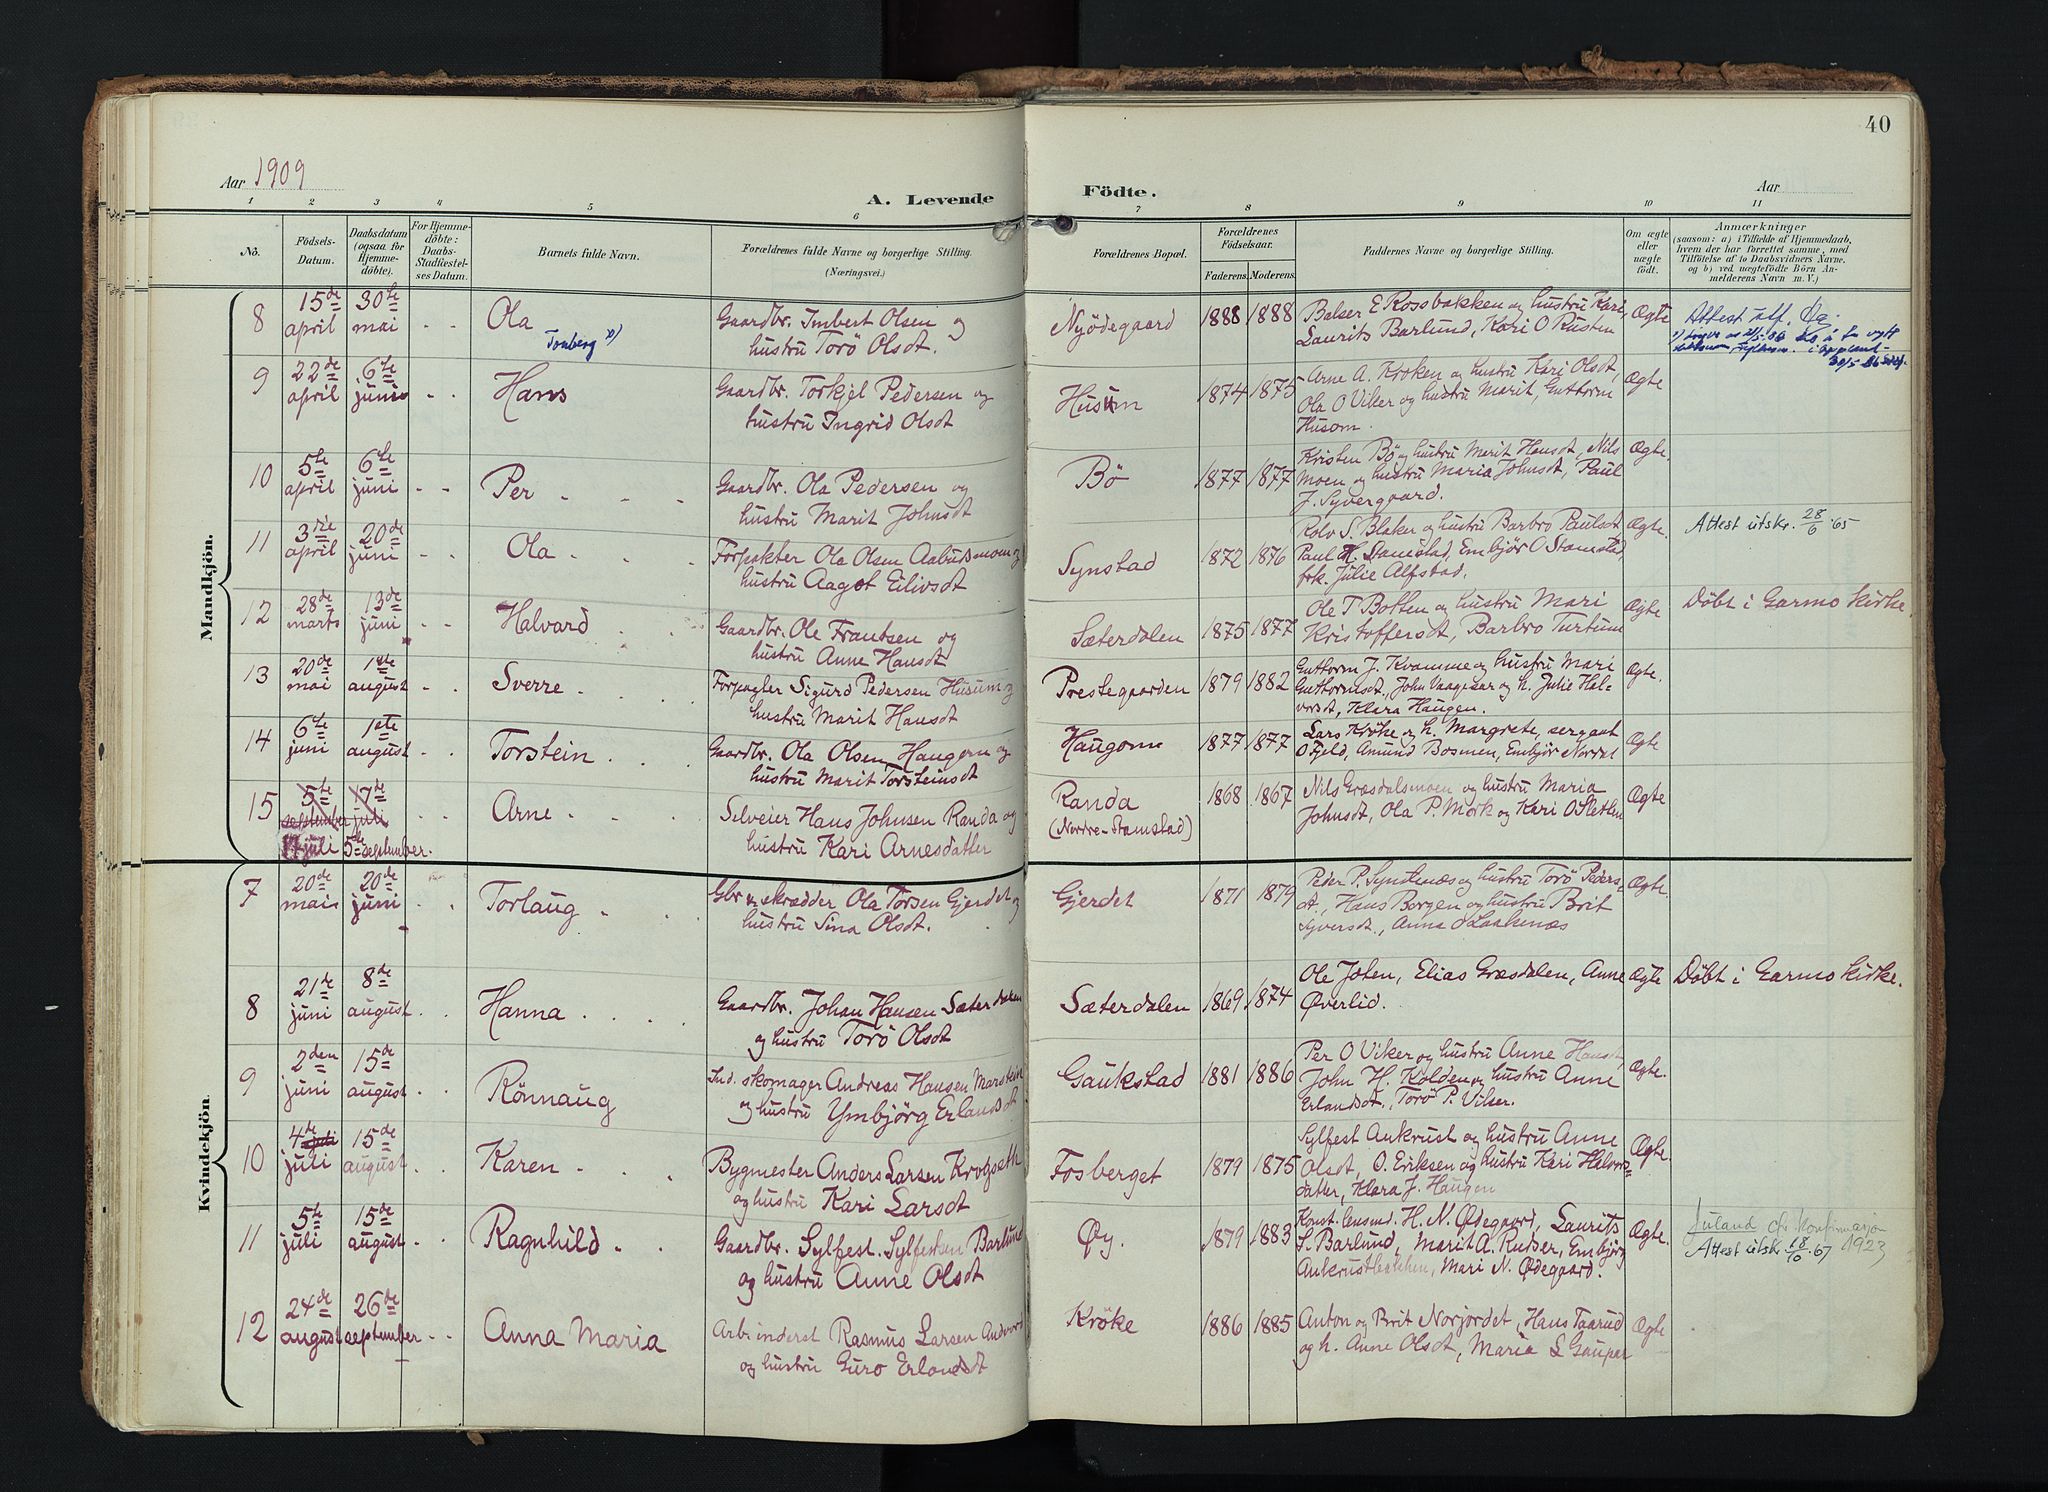 40
Aar 1909
A. Levende
Födte.
Aar
1 2 3 4 5 6 7 8 9 10 11
No.
Födsels-
Datum.
Daabsdatum
(ogsaa for
Hjemme-
döbte).
For Hjemme-
döbte:
Daabs-
Stadfæstel-
ses Datum.
Barnets fulde Navn.
Forældrenes fulde Navne og borgerlige Stilling.
(Næringsvei.)
Forældrenes Bopæl.
Forældrenes
Födselsaar.
Faderens. Moderens.
Faddernes Navne og borgerlige Stilling.
Om ægte
eller
uægte
födt.
Anmærkninger
(saasom: a) i Tilfælde af Hjemmedaab,
hvem der har forrettet samme, med
Tilföielse af to Daabsvidners Navne,
og b) ved uægtefödte Börn An-
melderens Navn m. V.)
Mandkjön.
8 15de april 30te mai Ola
Gaardbr. Imbert Olsen og
hustru Torö Olsdt.
Nyödegaard 1888 1888
Balser E Rossbakken og hustru Kari,
Laurits Barlund, Kari O Rusten
Ægte
Attest utf.
9 22de april 6te juni Hans
Gaardbr. Torkjel Pedersen og
hustru Ingrid Olsdt
Husum 1874 1875
Arne A. Kroken og hustru Kari Olsdt,
Ola O Viker og hustru Marit, Guttorm
Husom.
Ægte
10 5te april 6te juni Per
Gaardbr. Ola Pedersen og
hustru Marit Johnsdt
Bö 1877 1877
Kristen Bö og hustru Marit Hansdt, Nils
Moen og hustru Maria Johnsdt, Paul
J. Syvergaard.
Ægte.
11 3die april 20de juni Ola
Forpakter Ola Olsen Aabudsmoen og
hustru Aagot Eilivsdt
Synstad 1872 1876
Rolv S. Blaker og hustru Barbro Paulsdt
Paul H. Stamstad, Embjör O Stamstad,
frk. Julie Alfstad.
Ægte.
Attest utskr. 28/6 65
12 28de marts 13de juni Halvard
Gaardbr. Ole Frantsen og
hustru Anne Hansdt
Sæterdalen 1875 1877
Ole T Botten og hustru Mari
Kristoffersdt, Barbro Turtum
Ægte
Döbt i Garmo kirke.
13 20de mai 1ste august Sverre
Forpagter Sigurd Pedersen Husum og
hustru Marit Hansdt
Prestegaarden 1879 1882
Guttorm J. Kvamme og hustru Mari
Guttormsdt, John Vaagesar og h. Julie Hal-
vorsdt, Klara Haugen.
Ægte.
14 6te juni 1ste august Torstein
Gaardbr. Ola Olsen Haugom og
hustru Marit Torsteinsdt
Haugom 1877 1877
Lars Kröke og h. Margrete, sergeant
O Fjeld, Amund Bosmen, Embjör Nordal
Ægte
15 5te september 17de juli Arne
14 juli 5te september.
Selveier Hans Johnsen Randa og
hustru Kari Arnesdatter
Randa
(Nordre-Stamstad)
1868 1867
Nils Græsdalsmoen og hustru Maria
Johnsdt, Ola P. Mork og Kari O Sletten
Ægte
Kvindekjön.
7 20de mai 20de juni Torlaug
Gbr og skrædder Ola Torsen Gjerdet og
hustru Sina Olsdt.
Gjerdet 1871 1879
Peder P. Synstenæs og hustru Torö Peders-
dt, Hans Borgen og hustru Brit
Syversdt., Anna O Laakenæs
Ægte.
8 21de juni 8de august Hanna
Gaardbr. Johan Hansen Sæterdalen
og hustru Torö Olsdt
Sæterdalen 1869 1874
Ole Johen, Elias Græsdalen, Anne
Øverlid.
Ægte
Döbt i Garmo kirke.
9 2den juni 15de august Rönnaug
Ind. skomager Andreas Hansen Marstein
og hustru Ymbjörg Erlandsdt
Gaukstad 1881 1886
Per O Viker og hustru Anne Hansdt,
John H. Kolden og hustru Anne
Erlandsdt., Torö P. Viker.
Ægte.
10 4de juli 15de august Karen
Bygmester Anders Larsen Krogsæth
og hustru Kari Larsdt
Fosberget 1879 1875
Sylfest Aukrust og hustru Anne
Olsdt, O. Eriksen og hustru Kari Halvors-
datter, Klara J. Haugen
Ægte.
11 5te juli 15de august Ragnhild
Gaardbr. Sylfest Sylfesten Barlund
og hustru Anne Olsdt
Øy. 1879 1883
Konst. lensmd. H. N. Ødegaard, Laurits
S. Barlund, Marit A. Rudser, Embjörg
Aukrustbakken, Mari N. Ødegaard.
Ægte.
Juland cfr Konfirmasjon 1923
Attest utskr. 18/10 67
12 24de august 26de september Anna Maria
Arb. inderst Rasmus Larsen Andvord
og hustru Guro Erlandsdt
Kröke 1886 1885
Anton og Brit Norjordet, Hans Taarud
og h. Anne Olsdt, Maria L Gaupar
Ægte